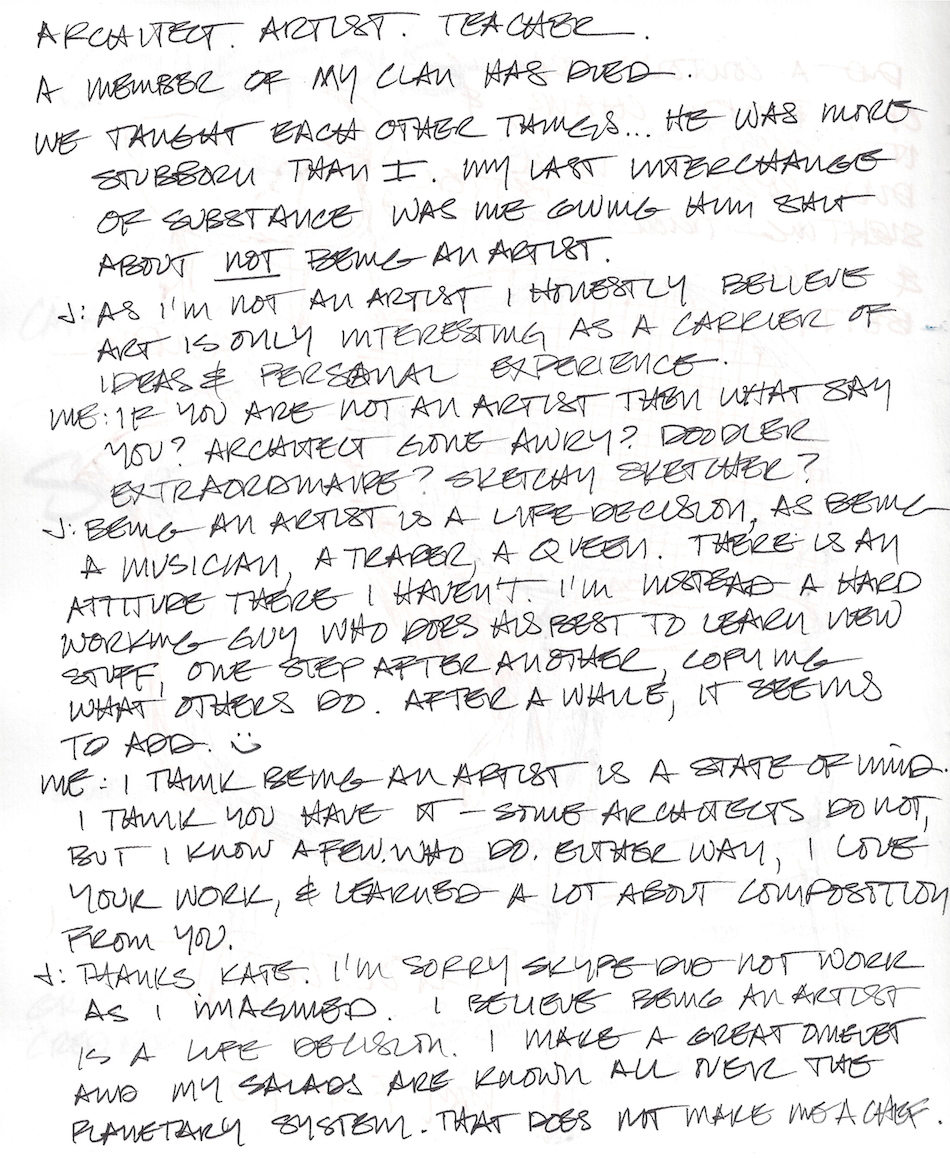 ARCHITECT. ARTIST. TEACHER.
A MEMBER OF MY CLAN HAS DIED.
WE TAUGHT EACH OTHER THINGS... HE WAS MORE
STUBBORN THAN I. MY LAST INTERCHANGE
OF SUBSTANCE WAS ME GIVING HIM SHIT
ABOUT NOT BEING AN ARTIST.
J: AS I'M NOT AN ARTIST I HONESTLY BELIEVE
ART IS ONLY INTERESTING AS A CARRIER OF
IDEAS & PERSONAL EXPERIENCE.
ME: IF YOU ARE NOT AN ARTIST THEN WHAT SAY
YOU? ARCHITECT GONE AWRY? DOODLER
EXTRAORDINAIRE? SKETCHY SKETCHER?
J: BEING AN ARTIST IS A LIFE DECISION, AS BEING
A MUSICIAN, A TRADER, A QUEEN. THERE IS AN
ATTITUDE THERE I HAVEN'T. I'M INSTEAD A HARD
WORKING GUY WHO DOES HIS BEST TO LEARN NEW
STUFF, ONE STEP AFTER ANOTHER, COPYING
WHAT OTHERS DO. AFTER A WHILE, IT SEEMS
TO ADD. :)
ME: I THINK BEING AN ARTIST IS A STATE OF MIND.
I THINK YOU HAVE IT – SOME ARCHITECTS DO NOT,
BUT I KNOW A FEW WHO DO. EITHER WAY, I LOVE
YOUR WORK, & LEARNED A LOT ABOUT COMPOSITION
FROM YOU.
J: THANKS KATE. I'M SORRY SKYPE DID NOT WORK
AS I IMAGINED. I BELIEVE BEING AN ARTIST
IS A LIFE DECISION. I MAKE A GREAT OMELET
AND MY SALADS ARE KNOWN ALL OVER THE
PLANETARY SYSTEM. THAT DOES NOT MAKE ME A CHEF.